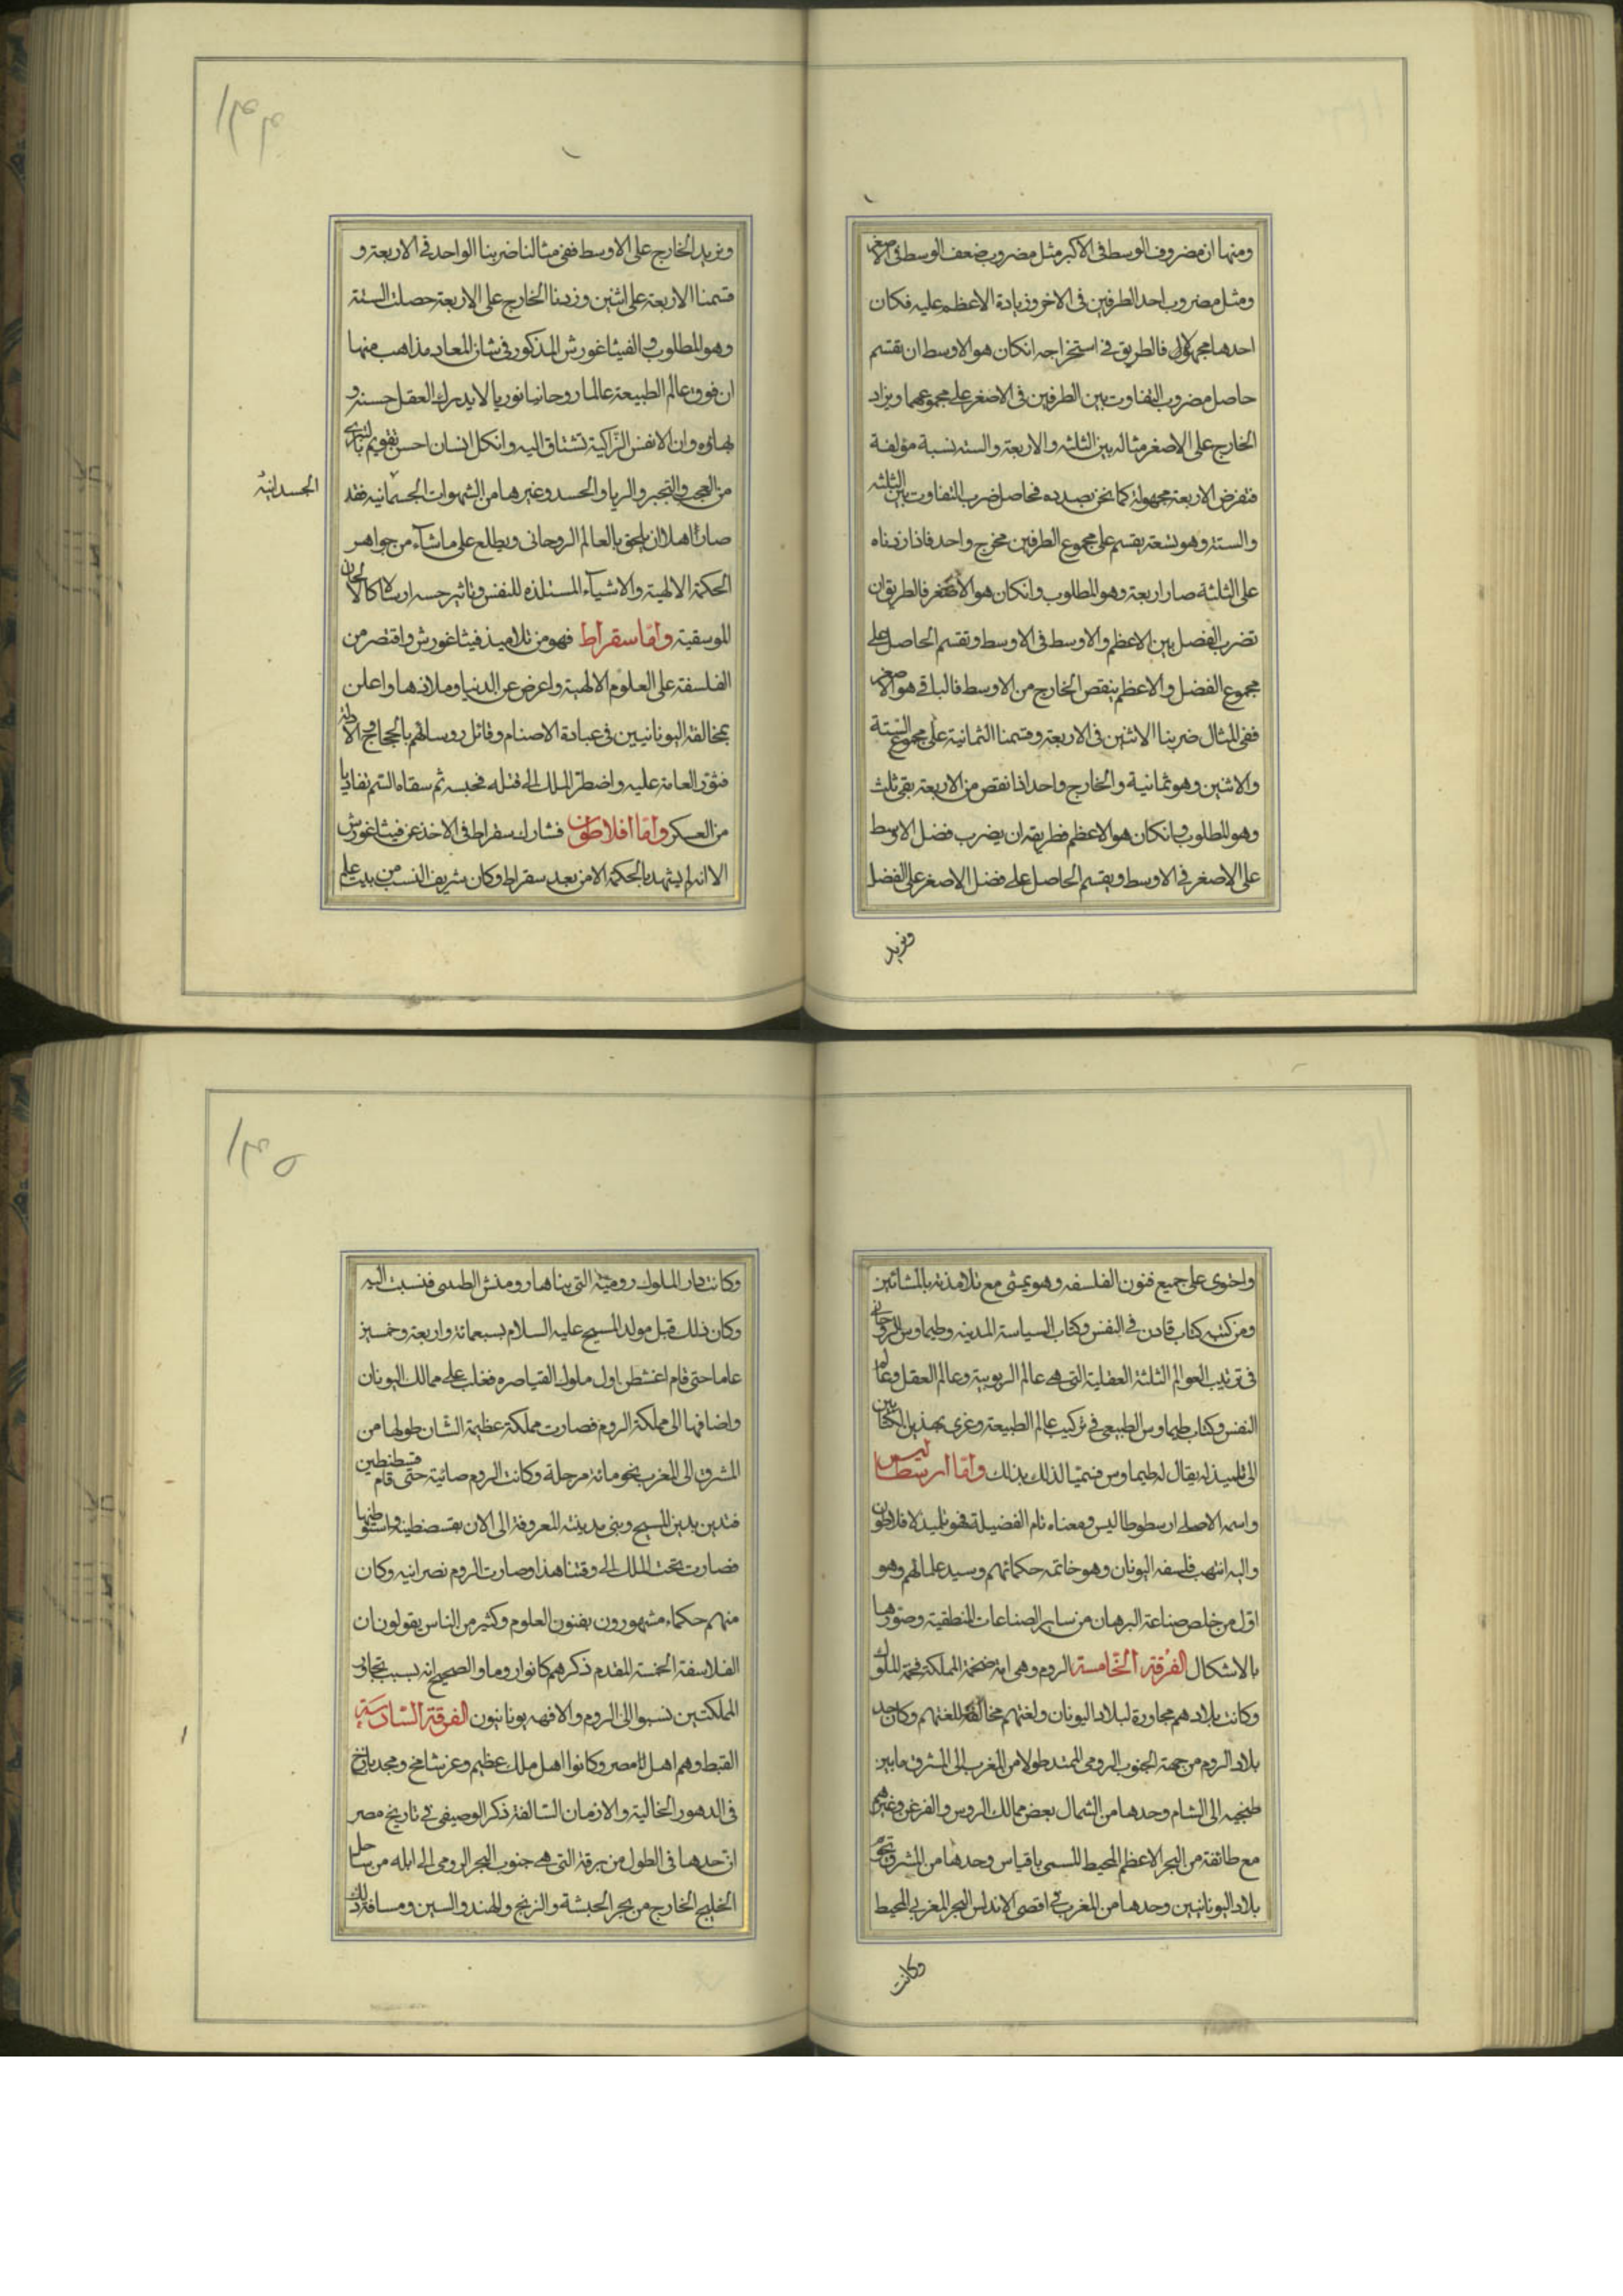 ومنها ان مضروب الوسط فى الاكبر مثل مضروب ضعف الوسط فى الاصغر
ومثل مضروب احد الطرفين فى الاخر وزيادة الاعظم عليه فكان
احدها مجهولا فالطريق فى استخراجه انكان هو الاوسط ان تقسم
حاصل مضروب التفاوت بين الطرفين فى الاصغر على مجموعهما ويزاد
الخارج على الاصغر مثاله بين الثلثه والاربعة والسته نسبة مؤلفة
فنفرض الاربعة مجهولة كما نحن بصدده فحاصل ضرب التفاوت بين الثلثه
والستة وهو تسعة يقسم على مجموع الطرفين مخرج واحد فاذا زدناه
على الثلثة صار اربعة وهو المطلوب وانكان هو الاصغر فالطريق ان
تضرب الفضل بين الاعظم والاوسط فى الاوسط وتقسم الحاصل على
مجموع الفضل والاعظم ينقص الخارج من الاوسط فالباقى هو الاصغر
ففى المثال ضربنا الاثنين فى الاربعة وقسمنا الثمانية على مجموع الستة
والاثنين وهو ثمانية والخارج واحد اذا نقص من الاربعة بقى ثلث
وهو المطلوب وانكان هو الاعظم فطريقه ان يضرب فضل الاوسط
على الاصغر فى الاوسط ويقسم الحاصل على فضل الاصغر على الفضل
ونزيد
١٣٤
ونزيد الخارج على الاوسط ففى مثالنا ضربنا الواحد فى الاربعة و
قسمنا الاربعة على اثنين وزدنا الخارج على الاربعة حصلت الستة
وهو المطلوب والفيثاغورش المذكور فى شان المعاد مذاهب منها
ان فوق عالم الطبيعة عالما روحانيا نوريا لا يدرك العقل حسنه و
بهاؤه وان الانفس الزاكية تشتاق اليه وانكل انسان احسن تقويم بالتبرى
من العجب والتجبر والريا والحسد وغيرها من الشهوات الجسمانيه فقد
الجسدانية
صار اهلا ان يلحق بالعالم الروحانى ويطلع على ماشآء من جواهر
الحكمة الالهية والاشيآء المستلذه للنفس وتاثير حسه ارسالا كالالحان
الموسقية واما سقراط فهو من تلاميذ فيثاغورش واقتصر من
الفلسفة على العلوم الالهية واعرض عن الدنيا وملاذها واعلن
بمخالفة اليونانيين فى عبادة الاصنام وقاتل روسائهم بالحجاج والادلة
فثور العامة عليه واضطر الملك الى قتله فحبسه ثم سقاه السم تفاديا
من العسكر واما افلاطون فشارك سقراط فى الاخذ عن فيثاغورش
الا انه لم يشهد بالحكمة الا من بعد سقراط وكان شريف النسب من بيت علم
واحتوى على جميع فنون الفلسفه وهو يمشى مع تلامذته بالمشائين
ومن كتبه كتاب قادن فى النفس وكتاب السياسة المدينه وطيماوس الروحانى
فى ترتيب العوالم الثلثة العقلية التى هى عالم الربوبية وعالم العقل وعالم
النفس وكتاب طيماوس الطبيعى فى تركيب عالم الطبيعة وغرى بهذين الكتابين
الى تلميذ له يقال له طيماوس فسميا لذلك بذلك واما ارسطاليس
واسمه الاصلى ارسطوطاليس ومعناه تام الفضيلة فهو تلميذ لافلاطون
واليه انتهت فلسفه اليونان وهو خاتمه حكمائهم وسيد علمائهم وهو
اول من خلص صناعة البرهان من ساير الصناعات المنطقية وصورها
بالاشكال الفرقة الخامسة الروم وهى امة ضخمة المملكة فخمة الملوك
وكانت بلادهم مجاورة لبلاد اليونان ولغتهم مخالفة للغتهم وكان حد
بلاد الروم من جهة الجنوب الرومى الممتد طولا من المغرب الى المشرق مابين
طنجيه الى الشام وحدها من الشمال بعض ممالك الروس والفرغن وغيرهم
مع طائفة من البحر الاعظم المحيط المسمى باقياس وحدها من المشرق تخم
بلاد اليونانيين وحدها من المغرب فى اقصى الاندلس البحر المغربى المحيط
وكانت
١٣٥
وكانت دار الملوك روميه التى بناها رومنش الطسى فنسبت اليه
وكان ذلك قبل مولد المسيح عليه السلام بسبعمائة واربعة وخمسين
عاما حتى قام اغشطس اول ملوك القياصره فغلب على ممالك اليونان
واضافها الى مملكة الروم فصارت مملكة عظيمة الشان طولها من
المشرق الى المغرب نحو مائة مرحلة وكانت الروم صائية حتى قام قسطنطين
فتدين بدين المسيح وبنى مدينته المعروفة الى الان بقسطنطينه واستوطنها
فصارت تحت الملك الى وقتنا هذا وصارت الروم نصرانيه وكان
منهم حكماء مشهورون بفنون العلوم وكثير من الناس يقولون ان
الفلاسفة الخمسة المقدم ذكرهم كانوا روما والصحيح انه بسبب تجاور
المملكتين نسبوا الى الروم والا فهم يونانيون الفرقة السادسة
القبط وهم اهل مصر وكانوا اهل ملك عظيم وعز شامخ ومجد باذخ
فى الدهور الخالية والازمان السالفة ذكر الوصيفى فى تاريخ مصر
ان حدها فى الطول من برقة التى هى جنوب البحر الرومى الى ايله من ساحل
الخليج الخارج من بحر الحبشة والزنج والهند والسين ومسافة ذلك